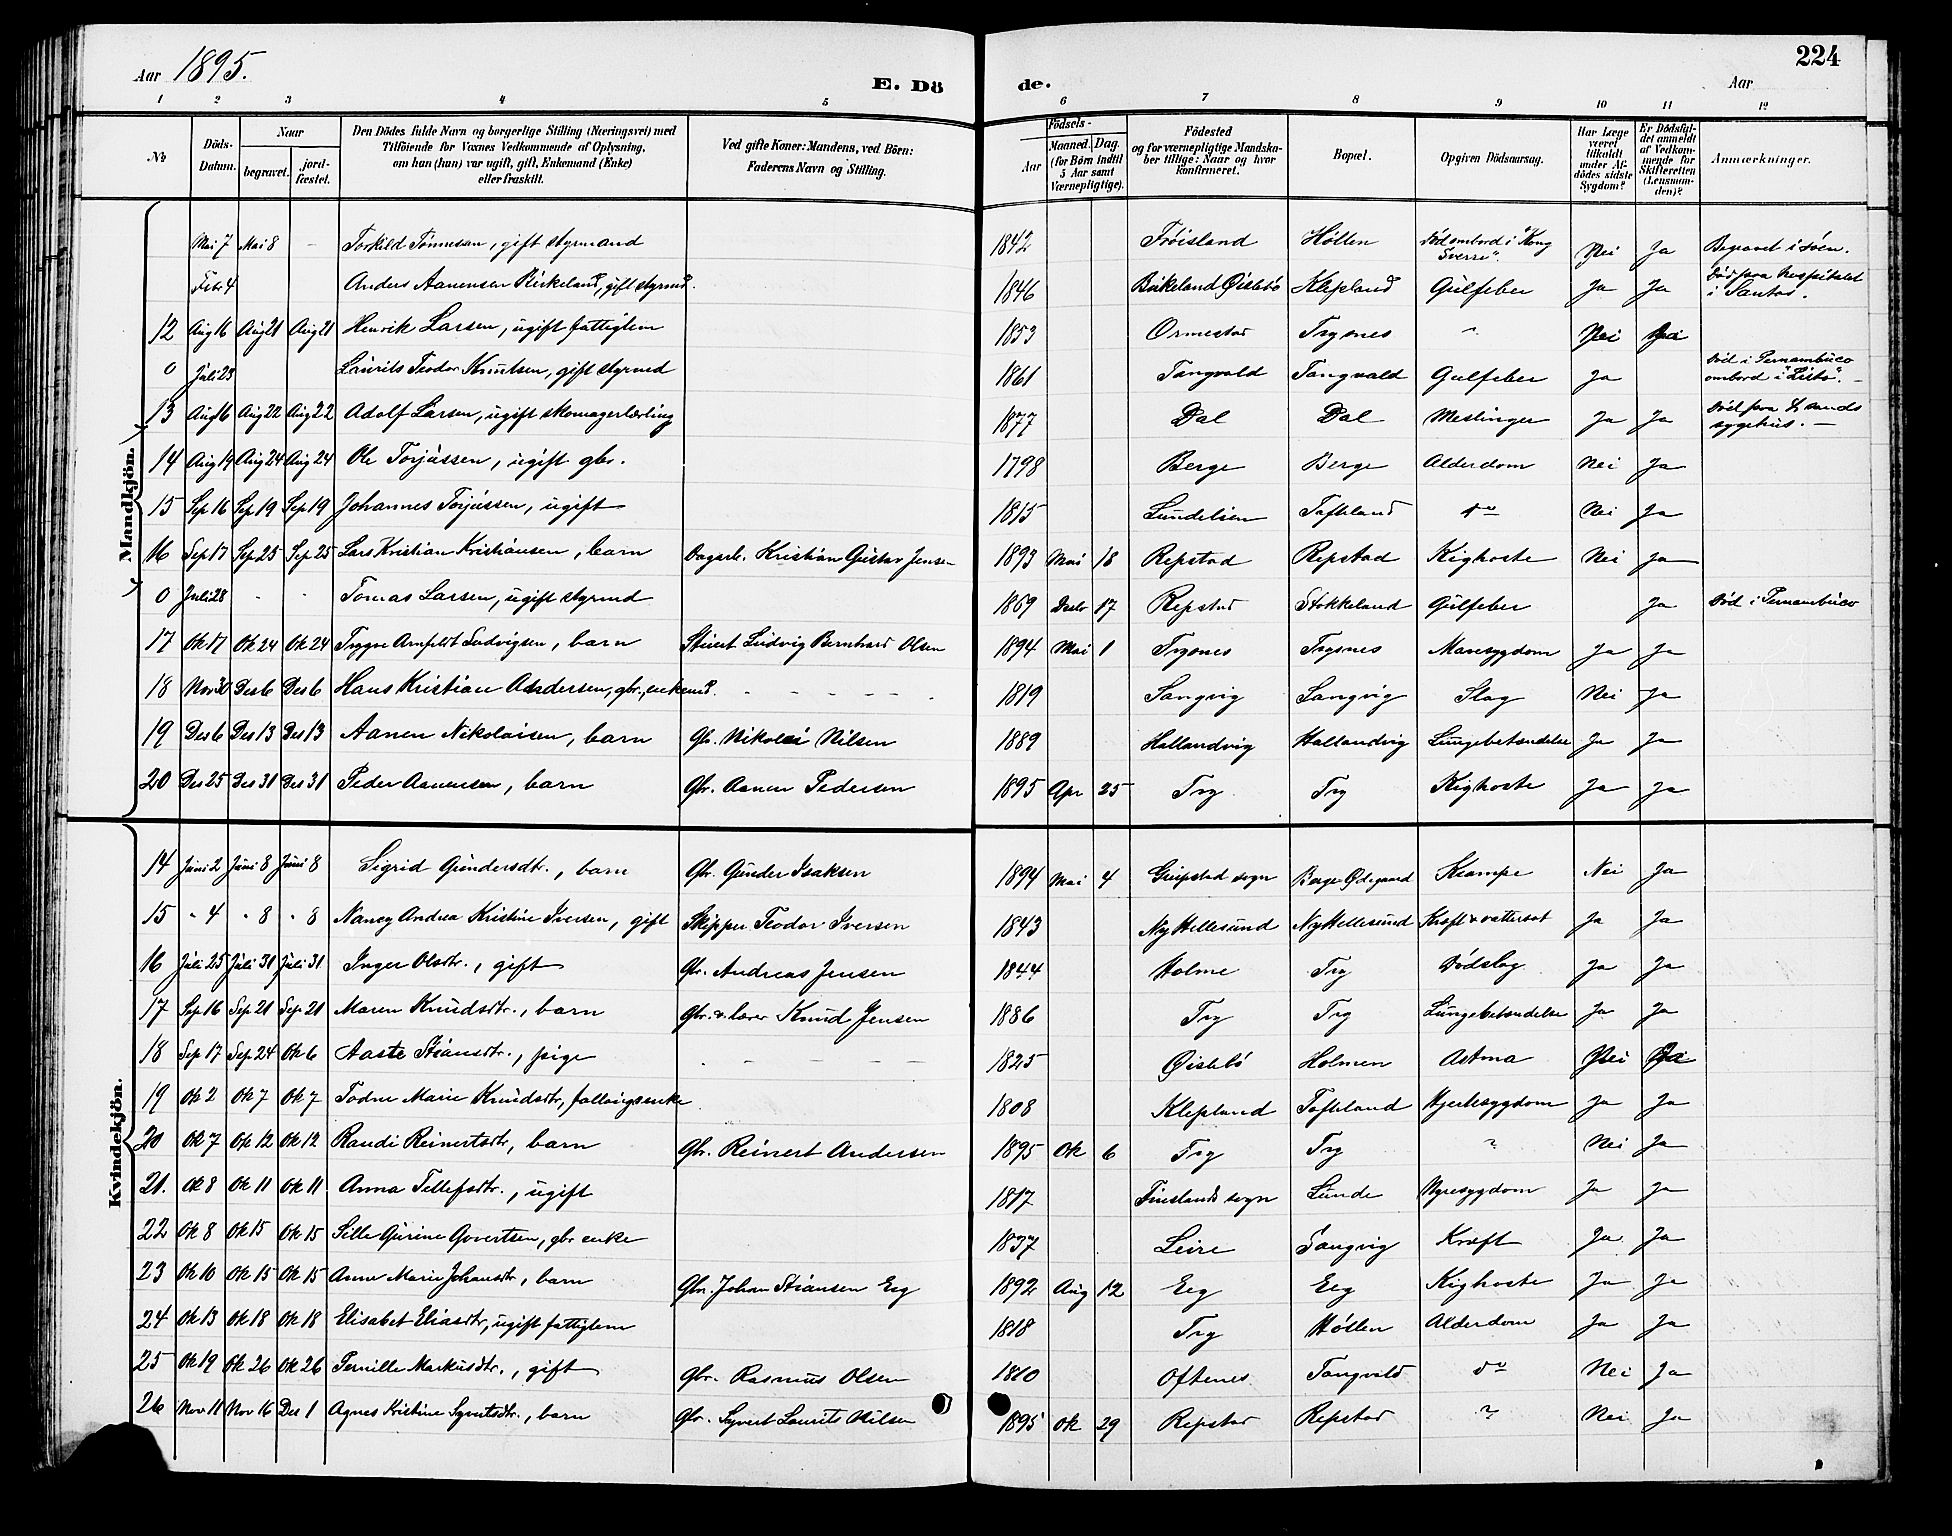 Aar 1895. E. Dö de. Aar 224
1 2 3 4 5 6 7 8 9 10 11 12
No Döds-Datum. Naar begravet. jord-fæstet. Den Dödes fulde Navn og borgerlige Stilling (Næringsvei) med Tilföiende for Voxnes Vedkommende af Oplysning, om han (hun) var ugift, gift, Enkemand (Enke) eller fraskilt. Ved gifte Koner: Mandens, ved Börn: Faderens Navn og Stilling. Födsels- Aar Maaned. Dag. (for Börn indtil 5 Aar samt Værnepligtige). Födested og for værnepligtige Mandskaber tillige: Naar og hvor konfirmeret. Bopæl. Opgiven Dödsaarsag. Har Læge været tilkaldt under Afdödes sidste Sygdom? Er Dödsfaldet anmeldt af Vedkommende for Skifteretten (Lensmanden)? Anmærkninger.
Mandkjön.
Mai 7 Mai 8 - Torkild Tönnesen, gift styrmand 1842 Fröisland Hölten Död ombord i "Kong Sverre". Nei Ja Begravet i söen.
Febr 4 Anders Aanensen Birkeland, gift styrmd. 1846 Birkeland Öislebö Klepland Gulfeber Ja Ja Död paa hospitalet i Santos.
12 Aug 16 Aug 21 Aug 21 Henrik Larsen, ugift fattiglem 1853 Ormestad Trysnes " Nei
0 Juli 23 Laurits Teodor Knutsen, gift styrmd 1861 Tangvald Tangvald Gulfeber Ja Död i Pernambuco ombord i "Lista".
13 Aug 16 Aug 22 Aug 22 Adolf Larsen, ugift skomagerlærling 1877 Dal Dal Meslinger Ja Ja Död paa sygehus. -
14 Aug 19 Aug 24 Aug 24 Ole Torjussen, ugift gbr. 1798 Berge Berge Alderdom Nei Ja
15 Sep 16 Sep 19 Sep 19 Johannes Torjussen, ugift 1815 Lundelien Tofteland do Nei Ja
16 Sep 17 Sep 25 Sep 25 Lars Kristian Kristiansen, barn Dagarb. Kristian Gustav Jensen 1893 Mai 18 Repstad Repstad Kighoste Nei Ja
0 Juli 28 - - Tomas Larsen, ugift styrmd 1869 Desbr 17 Repstad Stokkeland Gulfeber Ja Död i Pernambuco
17 Ok 17 Ok 24 Ok 24 Trygve Arnfeldt Ludvigsen, barn Stuert Ludvig Bernhard Olsen 1894 Mai 1 Trysnes Trysnes Mavesygdom Ja Ja
18 Nov 30 Des 6 Des 6 Hans Kristian Andersen, gbr., enkemd. - - - - - 1819 Langvig Langvig Slag Nei Ja
19 Des 6 Des 13 Des 13 Aanen Nikolaisen, barn Gbr. Nikolai Nilsen 1889 Hallandvig Hallandvig Lungebetændelse Ja Ja
20 Des 25 Des 31 Des 31 Peder Aanensen, barn Gbr. Aanen Pedersen 1895 Apr 25 Try Try Kighoste Ja Ja
Kvindekjön.
14 Juni 2 Juni 8 Juni 8 Sigrid Gundersdtr., barn Gbr. Gunder Isaksen 1894 Mai 4 Greipstad sogn Berge Ödegaard Krampe Nei Ja
15 " 4 " 8 " 8 Nancy Andrea Kristine Iversen, gift Skipper Teodor Iversen 1843 Ny Hellesund Ny Hellesund Kræft & vattersot Ja Ja
16 Juli 25 Juli 31 Juli 31 Inger Olsdtr., gift Gbr. Andreas Jensen 1844 Holme Try Dödslag Ja Ja
17 Sep 16 Sep 21 Sep 21 Maren Knudsdtr., barn Gbr. & lærer Knud Jensen 1886 Try Try Lungebetændelse Ja Ja
18 Sep 17 Sep 24 Ok 6 Aaste Stiansdtr., pige - - - - 1825 Öislebö Holmen Astma Nei
19 Ok 2 Ok 7 Ok 7 Todne Marie Knudsdtr, enke 1808 Klepland Tofteland Hjertesygdom Ja Ja
20 Ok 7 Ok 12 Ok 12 Randi Reinertsdtr, barn Gbr. Reinert Andersen 1895 Ok 6 Try Try ? Nei Ja
21. Ok 8 Ok 11 Ok 11 Anna Tellefsdtr., ugift 1817 Finslands sogn Lunde Nyresygdom Ja Ja
22 Ok 8 Ok 15 Ok 15 Sille Gurine Govertsen, gbr enke 1837 Leire Langvig Kræft Ja Ja
23 Ok 10 Ok 15 Ok 15 Anne Marie Johansdtr, barn Gbr. Johan Stiansen Eeg 1892 Aug 12 Eeg Eeg Kighoste Ja Ja
24 Ok 13 Ok 18 Ok 18 Elisabet Eliasdtr, ugift fattiglem 1818 Try Höllen Alderdom Ja Ja
25 Ok 19 Ok 26 Ok 26 Pernille Markusdtr., gift Gbr. Rasmus Olsen 1810 Oftenes Tangvald do Nei Ja
26 Nov 11 Nov 16 Des 1 Agnes Kristine Syvertsdtr., barn Gbr. Syvert Laurits Nilsen 1895 Ok 29 Repstad Repstad ? Nei Ja